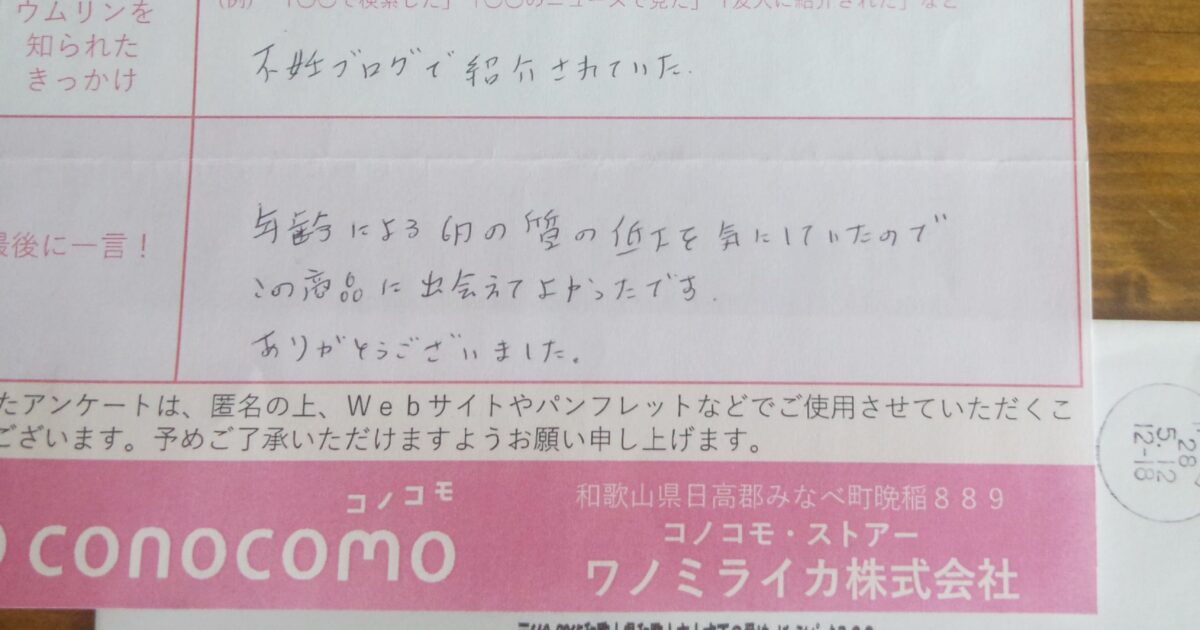 ウムリンを
知られた
きっかけ
(例) 「〇〇で検索した」「〇〇のニュースで見た」「友人に紹介された」など
不妊ブログで紹介されていた.
最後に一言！
年齢による卵の質の低下を気にしていたので
この商品に出会えてよかったです.
ありがとうございました。
たアンケートは、匿名の上、Ｗｅｂサイトやパンフレットなどでご使用させていただくこ
ございます。予めご了承いただけますようお願い申し上げます。
コノコモ
conocomo
和歌山県日高郡みなべ町晩稲８８９
コノコモ・ストアー
ワノミライカ株式会社
28
5.12
12-18